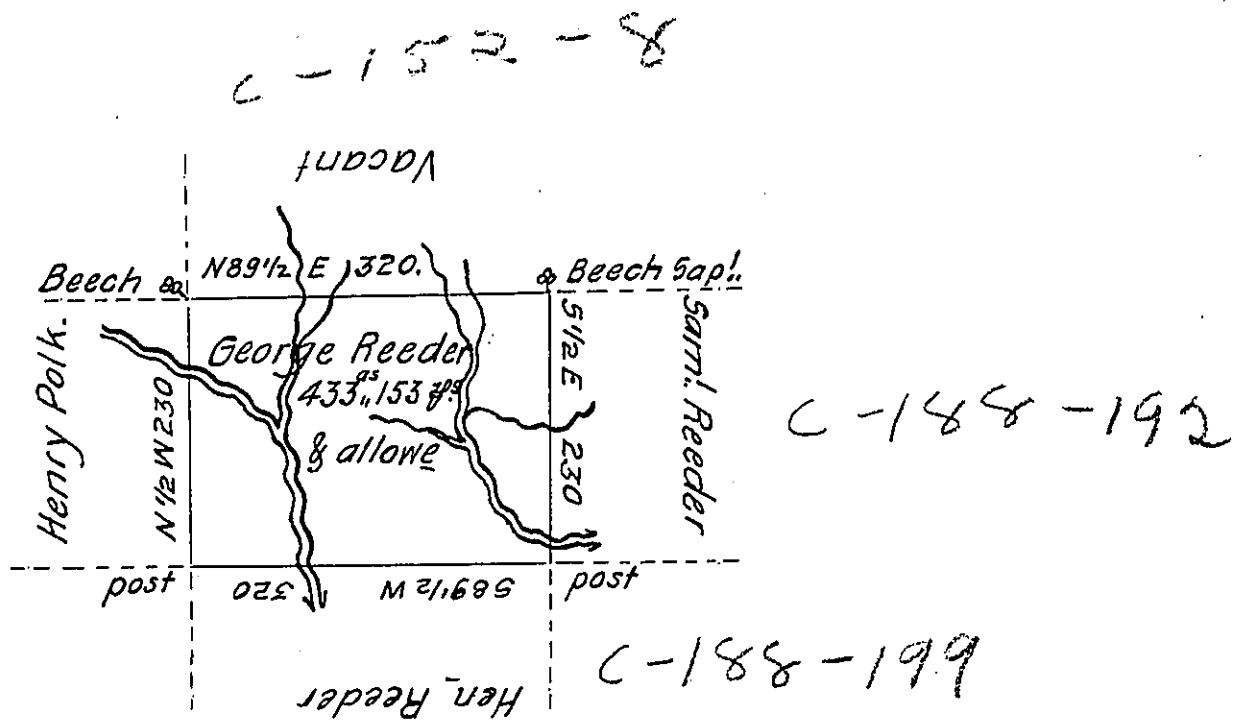 C-152-8
Vacant
Beech N89 1/2 E 320. Beech Sapl.
Henry Polk.
N 1/2 W 230
George Reeder
433 as 153 ps
& allowe
S 1/2 E 230
Saml. Reeder
C-188-192
post 320 S89 1/2 W post
Hen. Reeder
C-188-199